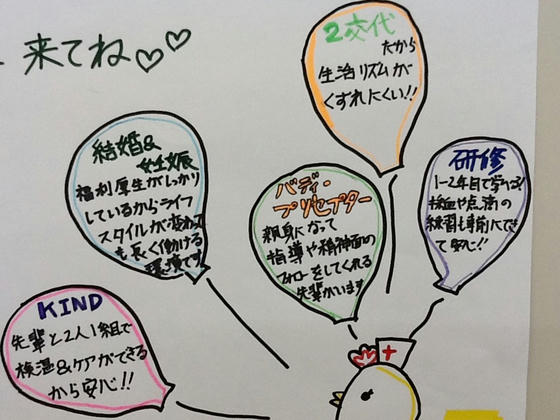 来てね♡♡
2交代
だから
生活リズムが
くずれにくい!!
結婚&
妊娠
福利厚生がしっかり
しているからライフ
スタイルが変わって
も長く働ける
環境です
バディ・
プリセプター
親身になって
指導や精神面の
フォローをしてくれる
先輩がいます
研修
1~2年目で学べる!
採血や点滴の
練習も事前にでき
て安心!!
KIND
先輩と2人1組で
検温&ケアができる
から安心!!